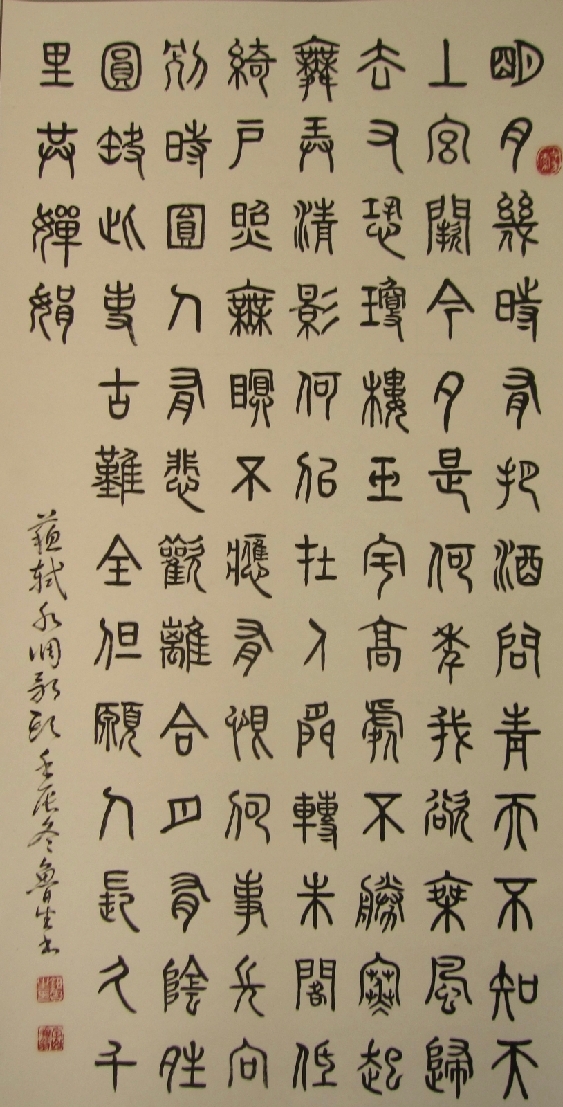 明月幾時有把酒問青天不知天
上宮闕今夕是何年我欲乘風歸
去又恐瓊樓玉宇高處不勝寒起
舞弄清影何似在人間轉朱閣低
綺戶照無眠不應有恨何事長向
別時圓人有悲歡離合月有陰晴
圓缺此事古難全但願人長久千
里共嬋娟
蘇軾水調歌頭 壬辰冬魯生书